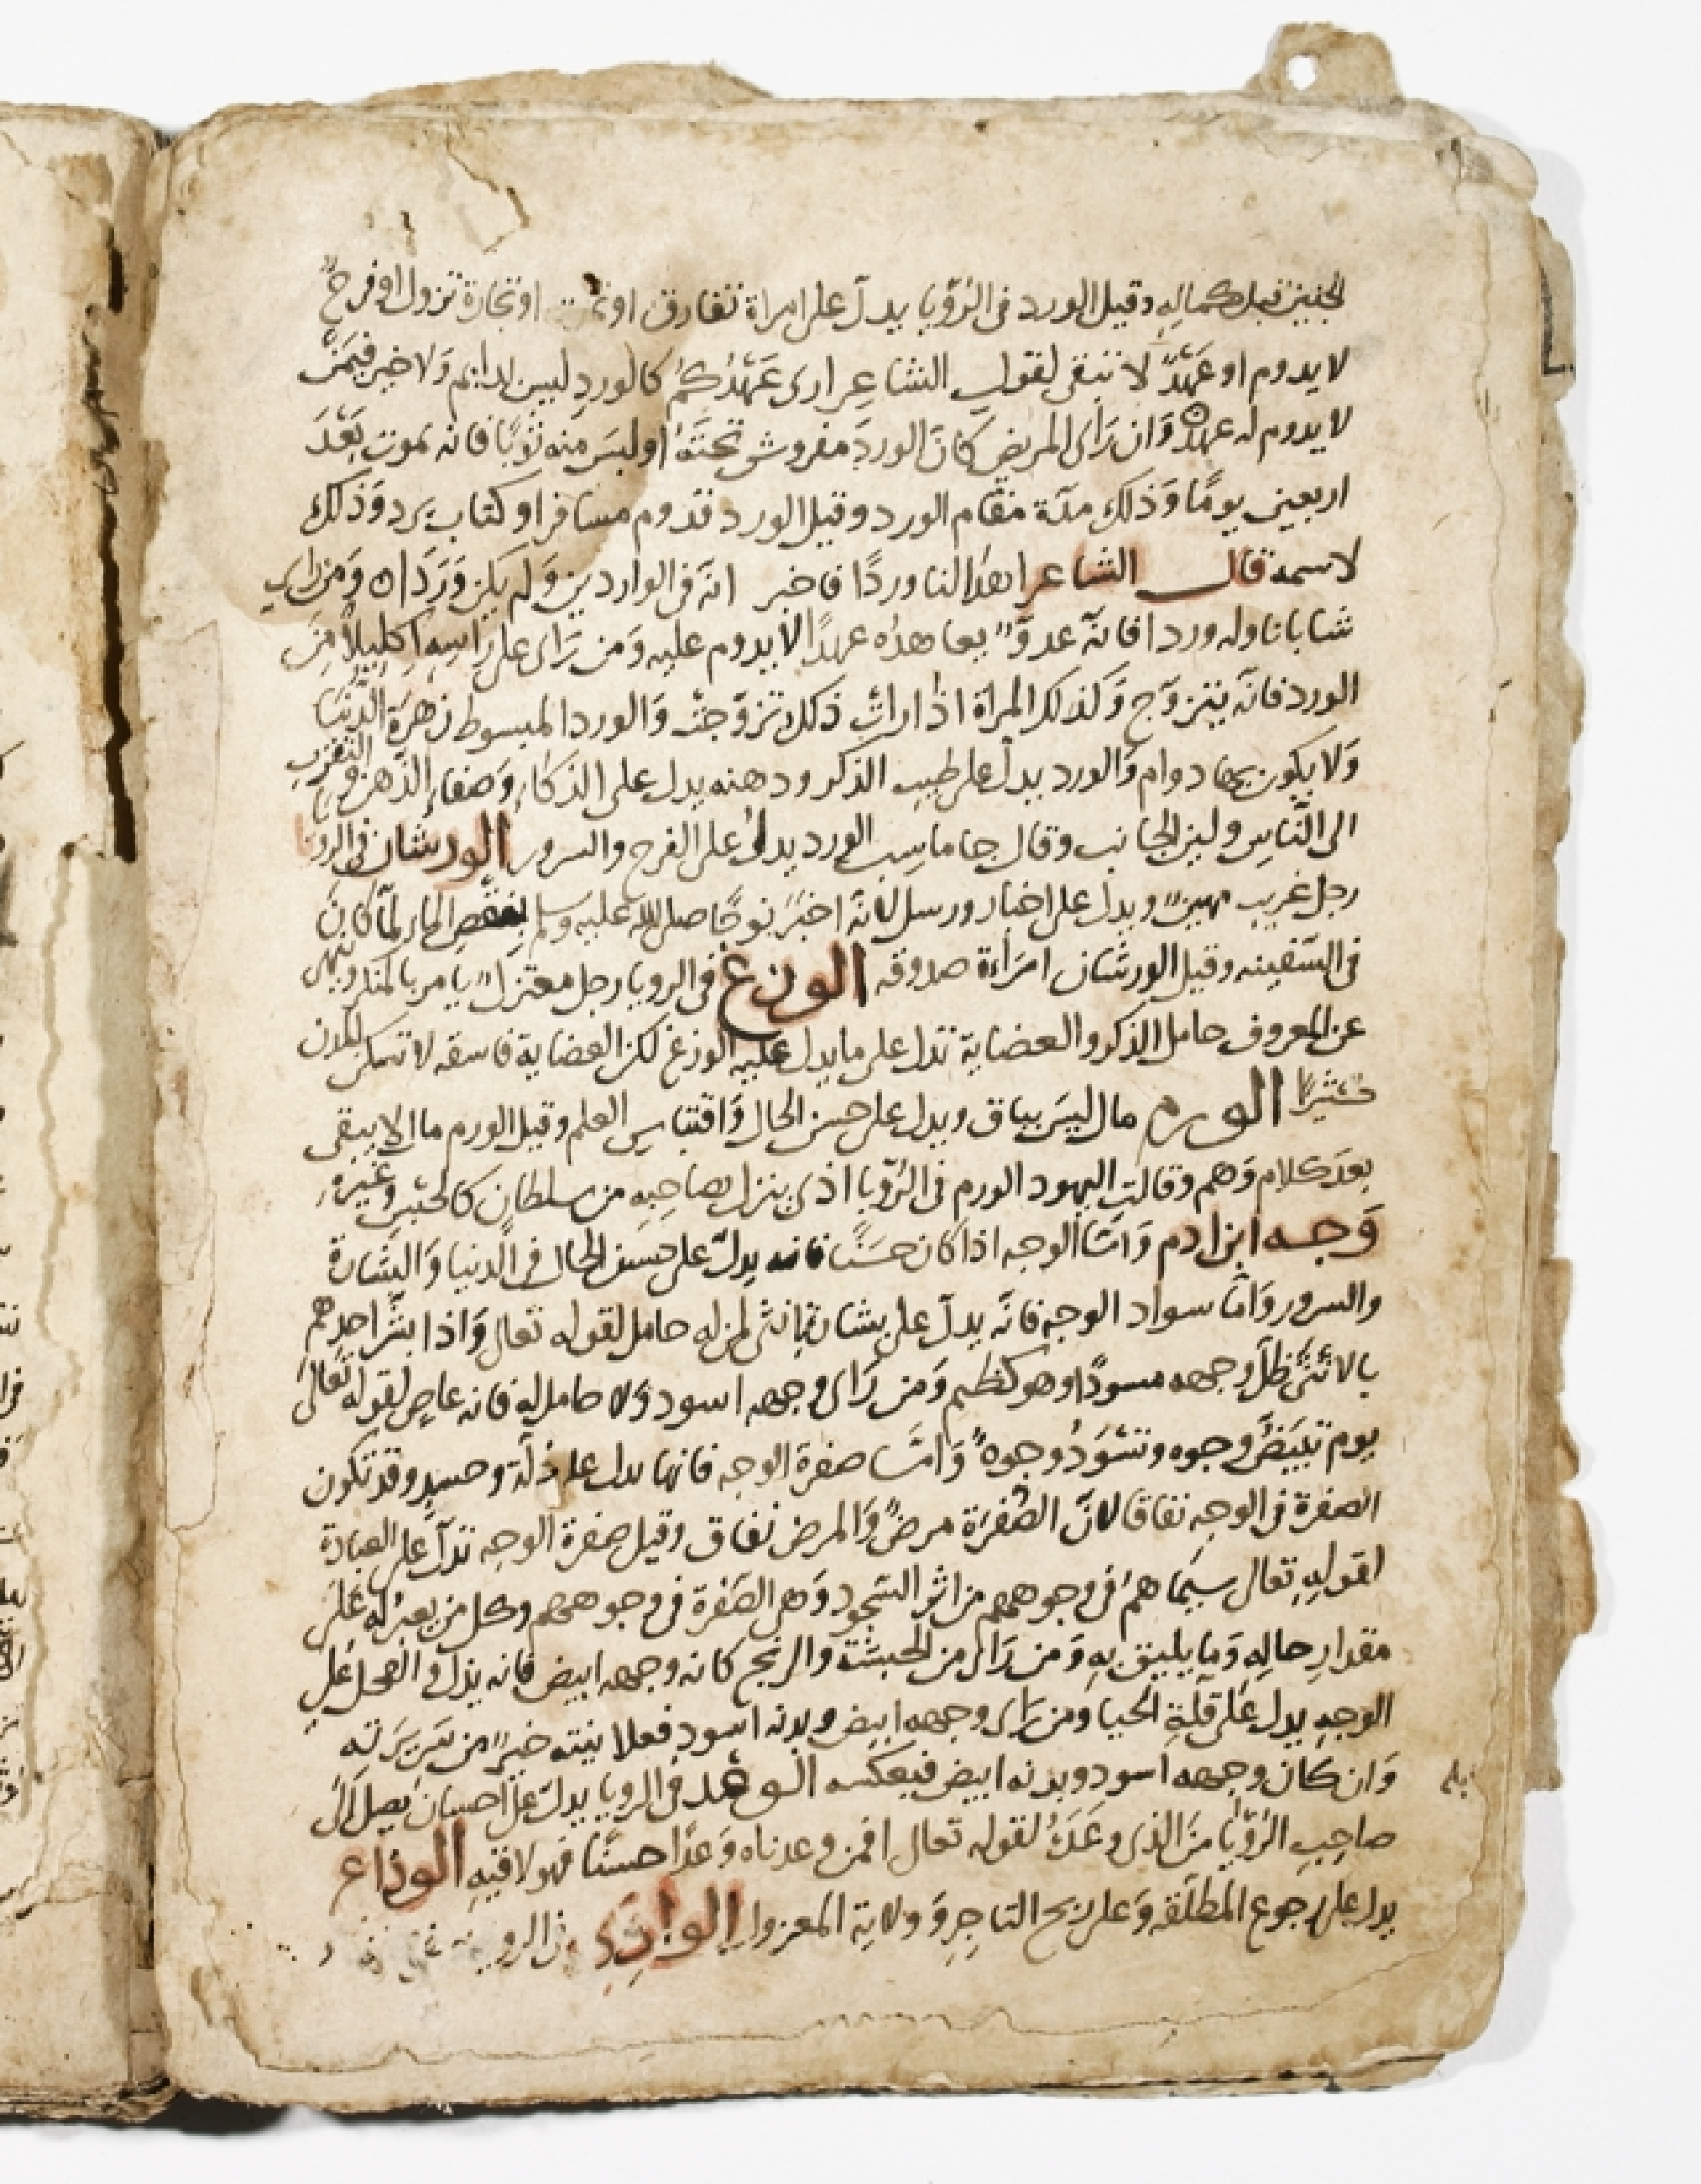 الجنين قبل كماله وقيل الورد في الرؤيا يدل على امراة تفارق او تموت او تجارة تزول او فرحٌ
لا يدوم او عَهْدٌ لا يبقى لقول الشاعر ارى عَهْدُكُم كالوردِ ليس بدائم وَلا خير فيمَنْ
لا يدوم له عهدٌ وَان رَاى المريض كانَ الوردَ مفروش تحتَهُ او لبسَ منه ثوبًا فانه يموت بَعْدَ
اربعين يومًا وَذلك مدّة مقام الورد وقيل الورد قدوم مسافر او كتاب يرد وَذلك
لاسمه قال الشاعر اهدا لنا وردًا فاخبر انّه في الواردين وَلم يكن وَرَداه وَمن راى
شابا ناوله وردا فانّه عدوٌّ يعاهده عهدًا لا يدوم عليه وَمن رَاى على رَاسِهِ اكليلاً مِنَ
الورد فانّه يتزوّج وَكذلك المراة اذا رات ذلك تزوّجت وَالورد المبسوط زهرَة الدّنيَا
وَلا يكون بها دوام وَالورد يدل على طيب الذكر ودهنه يدل على الذكاءِ وَصفاءِ الذهن والتقرّبِ
الى النّاسِ ولين الجانب وقال جاماسِب الورد يدلّ على الفرح والسرور الورشان في الرؤيا
رجل غريب مهينٌ ويدل على اخبار ورسل لانّه اخبَرَ نوحًا صلى الله عليه وسلم بنقصِ الماء لمّا كانَ
في السّفينه وقيل الورشان امرَاءة صدوقه الوزغ في الرويا رجل معتزلٌ يامر بالمنكر وينهى
عن المعروف خامل الذكر والعضاية تدل على ما يدل عليه الوزغ لكن العضاية فاسقه لا تسكن المدن
كثيرًا الورم مال ليسَ بباق ويدل على حسن الحال وَاقتباسِ العلم وقيل الورم مال لا يبقى
بعدَ كلام وَهم وقالت اليهود الورم في الرّؤيا اذى ينزل بصاحِبِهِ من سلطانٍ كالحبْسِ وغيره
وَجه ابن ادم وَامّا الوجه اذا كان حَسَنًا فانه يدلّ على حسن الحال في الدنيا وَالبشارة
والسرور وَامّا سواد الوجه فانّه يدلّ على بشارة بانثى لمن له حامل لقوله تعالى وَاذا بشّر احدهم
بالانثى ظلّ وجهه مسودًا وهو كظيم وَمن رَاى وجهه اسود وَلا حامل له فانه عاصٍ لقوله تَعَالى
يوم تبيَضّ وجوه وتسْوَدّ وجوهٌ وَامّا صفرة الوجه فانها تدل على ذلّة وحسدٍ وقد تكون
الصفرة في الوجه نفاقا لانّ الصّفرَة مرضٌ وَالمرض نفاق وقيل صفرة الوجه تدلّ على العبادة
لقولِهِ تعالى سيماهم في وجوههم من اثر السّجود وَهي الصّفرة في وجوههم وكل من يعبرُ له عَلى
مقدار حالِهِ وَما يليق بهِ وَمن رَاى من الحبشة والزنج كانه وجهه ابيض فانه يذل والكحل عَلى
الوجه يدل عَلى قلّةِ الحيا ومن رَاى وجهه ابيض وبدنه اسود فعلانيته خيرٌ من سَريرَتِهِ
وَان كان وجهه اسود وبدنه ابيض فبعكسه الوعْد في الرويا يدل عَلى احسان يصل الى
صاحِبِ الرّؤيَا منَ الذي وعَدَهُ لقوله تعالى افمن وعدناه وَعدًا حسنًا فهو لاقيهِ الوداع
يدل على رجوع المطلّقه وَعلى ربح التاجِرِ وَولاية المعزول الوارث في الرويا